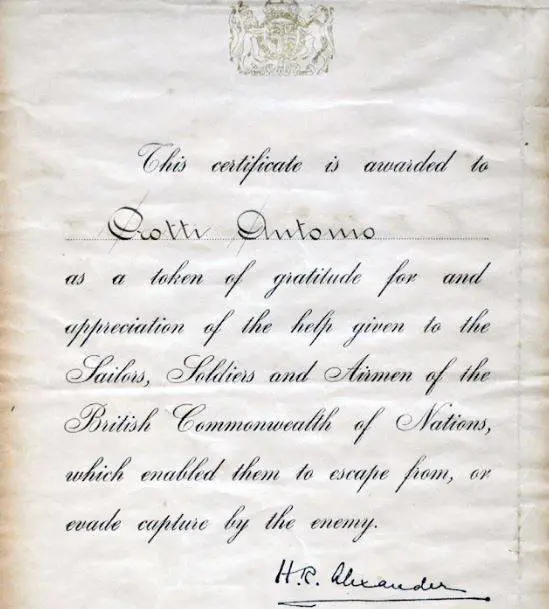 This certificate is awarded to
Crotti Antonio
as a token of gratitude for and
appreciation of the help given to the
Sailors, Soldiers and Airmen of the
British Commonwealth of Nations,
which enabled them to escape from, or
evade capture by the enemy.
H.R. Alexander